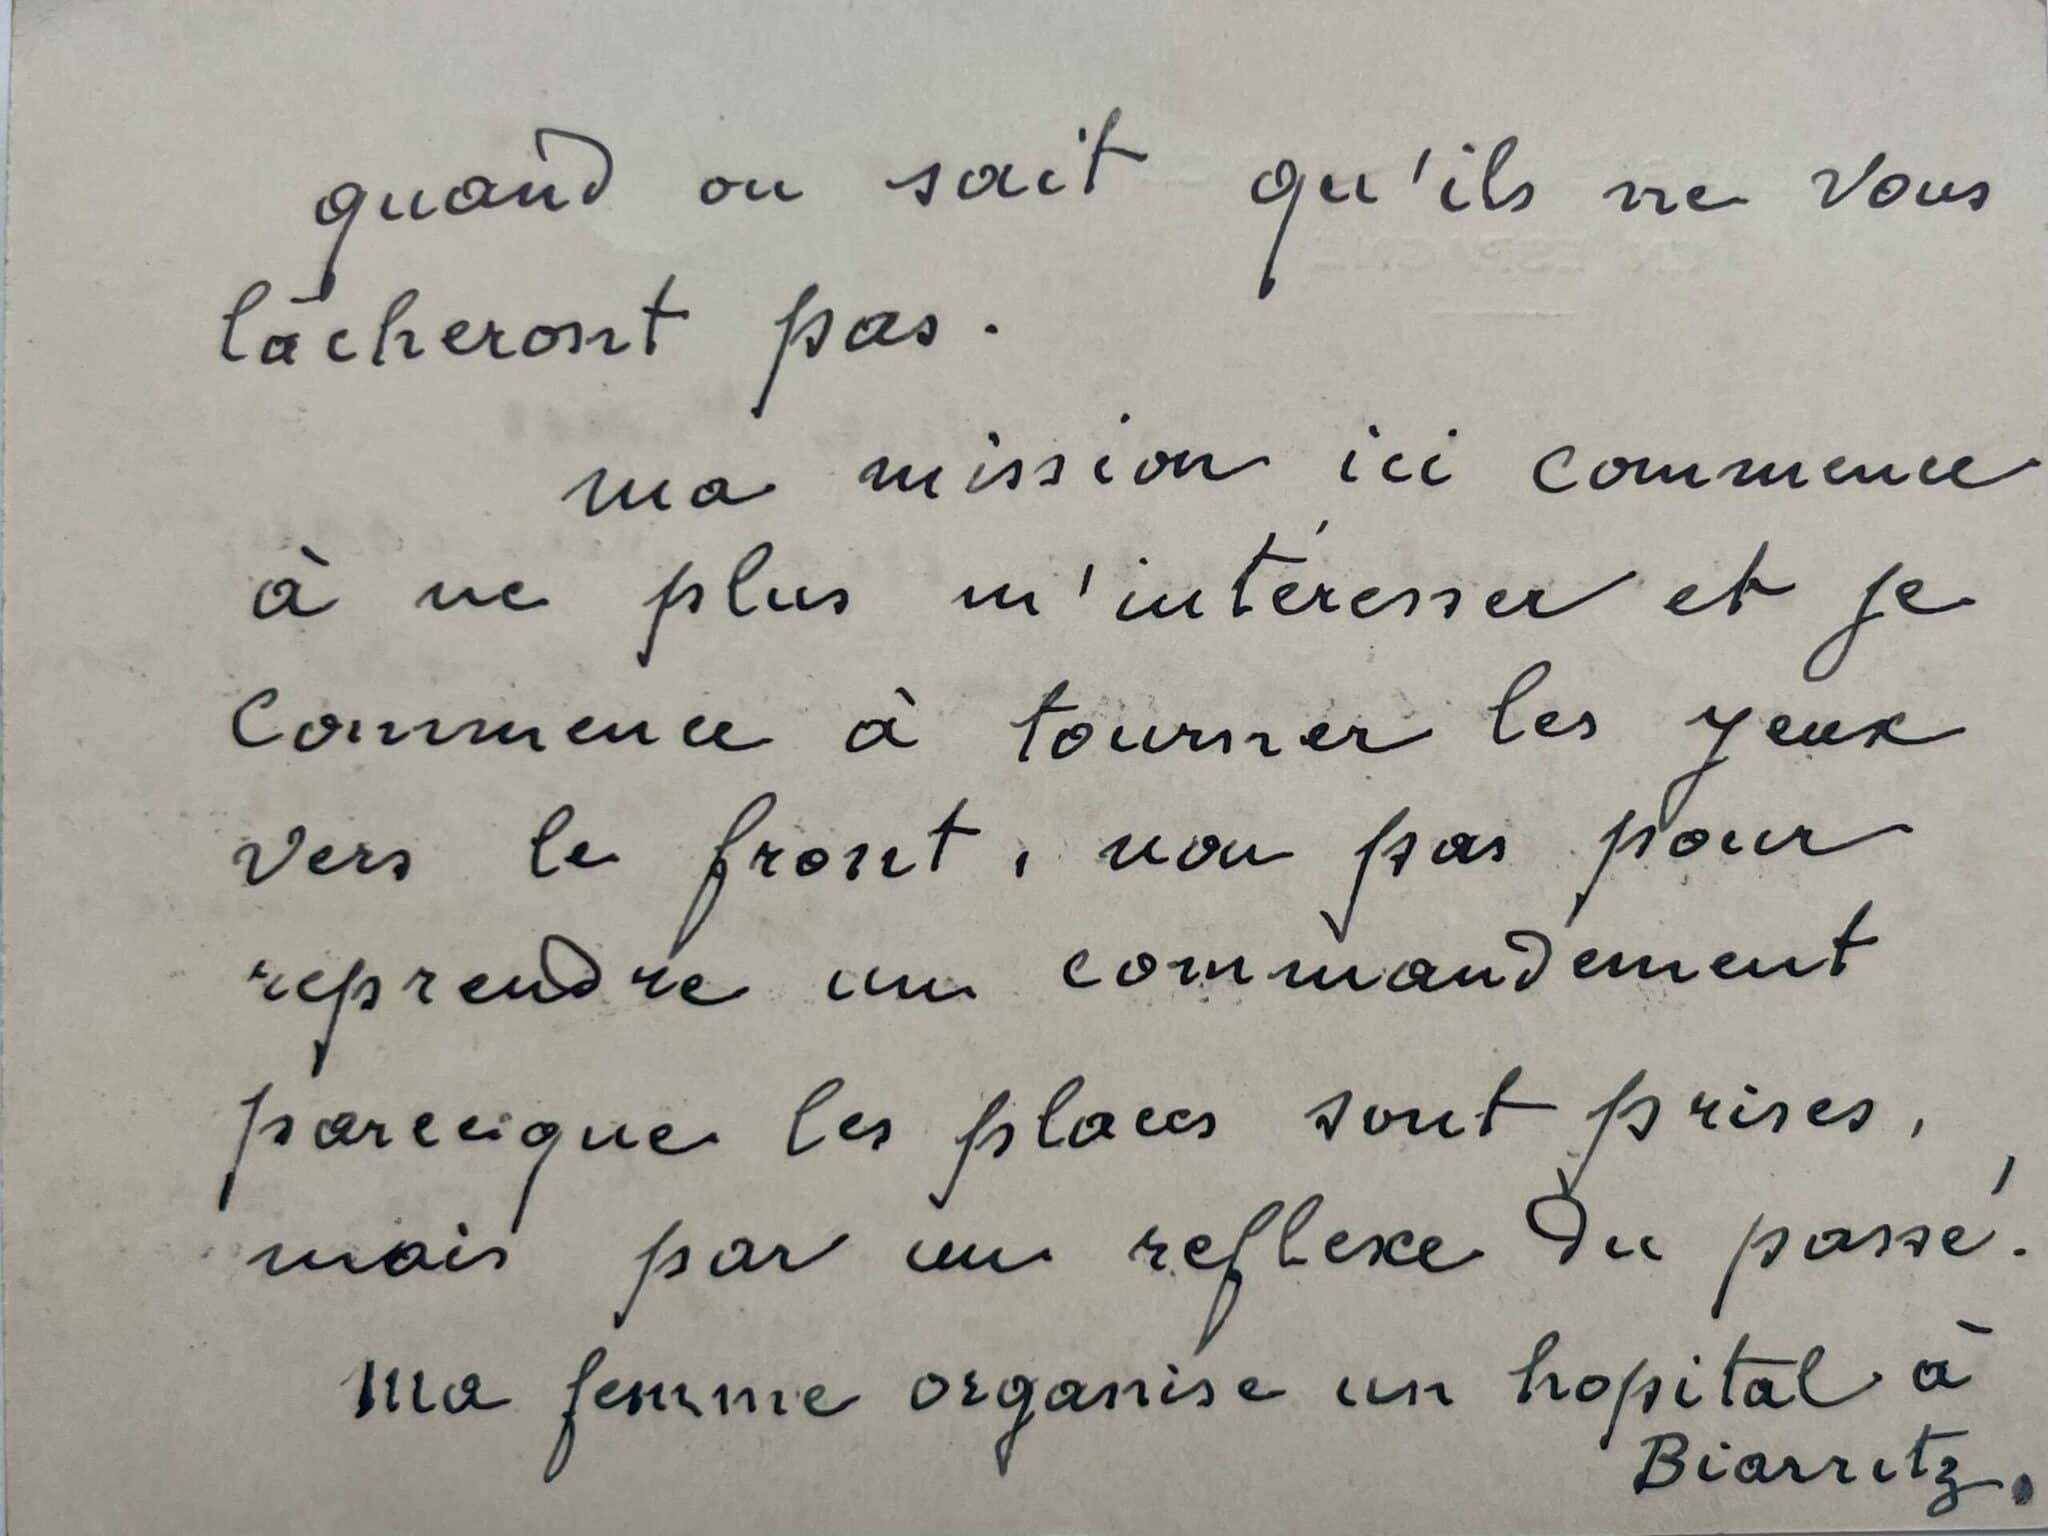 quand on sait qu'ils ne vous
lâcheront pas.
ma mission ici commence
à ne plus m'intéresser et je
commence à tourner les yeux
vers le front, non pas pour
reprendre un commandement
parceque les places sont prises,
mais par un reflexe du passé.
Ma femme organise un hopital à
Biarritz.